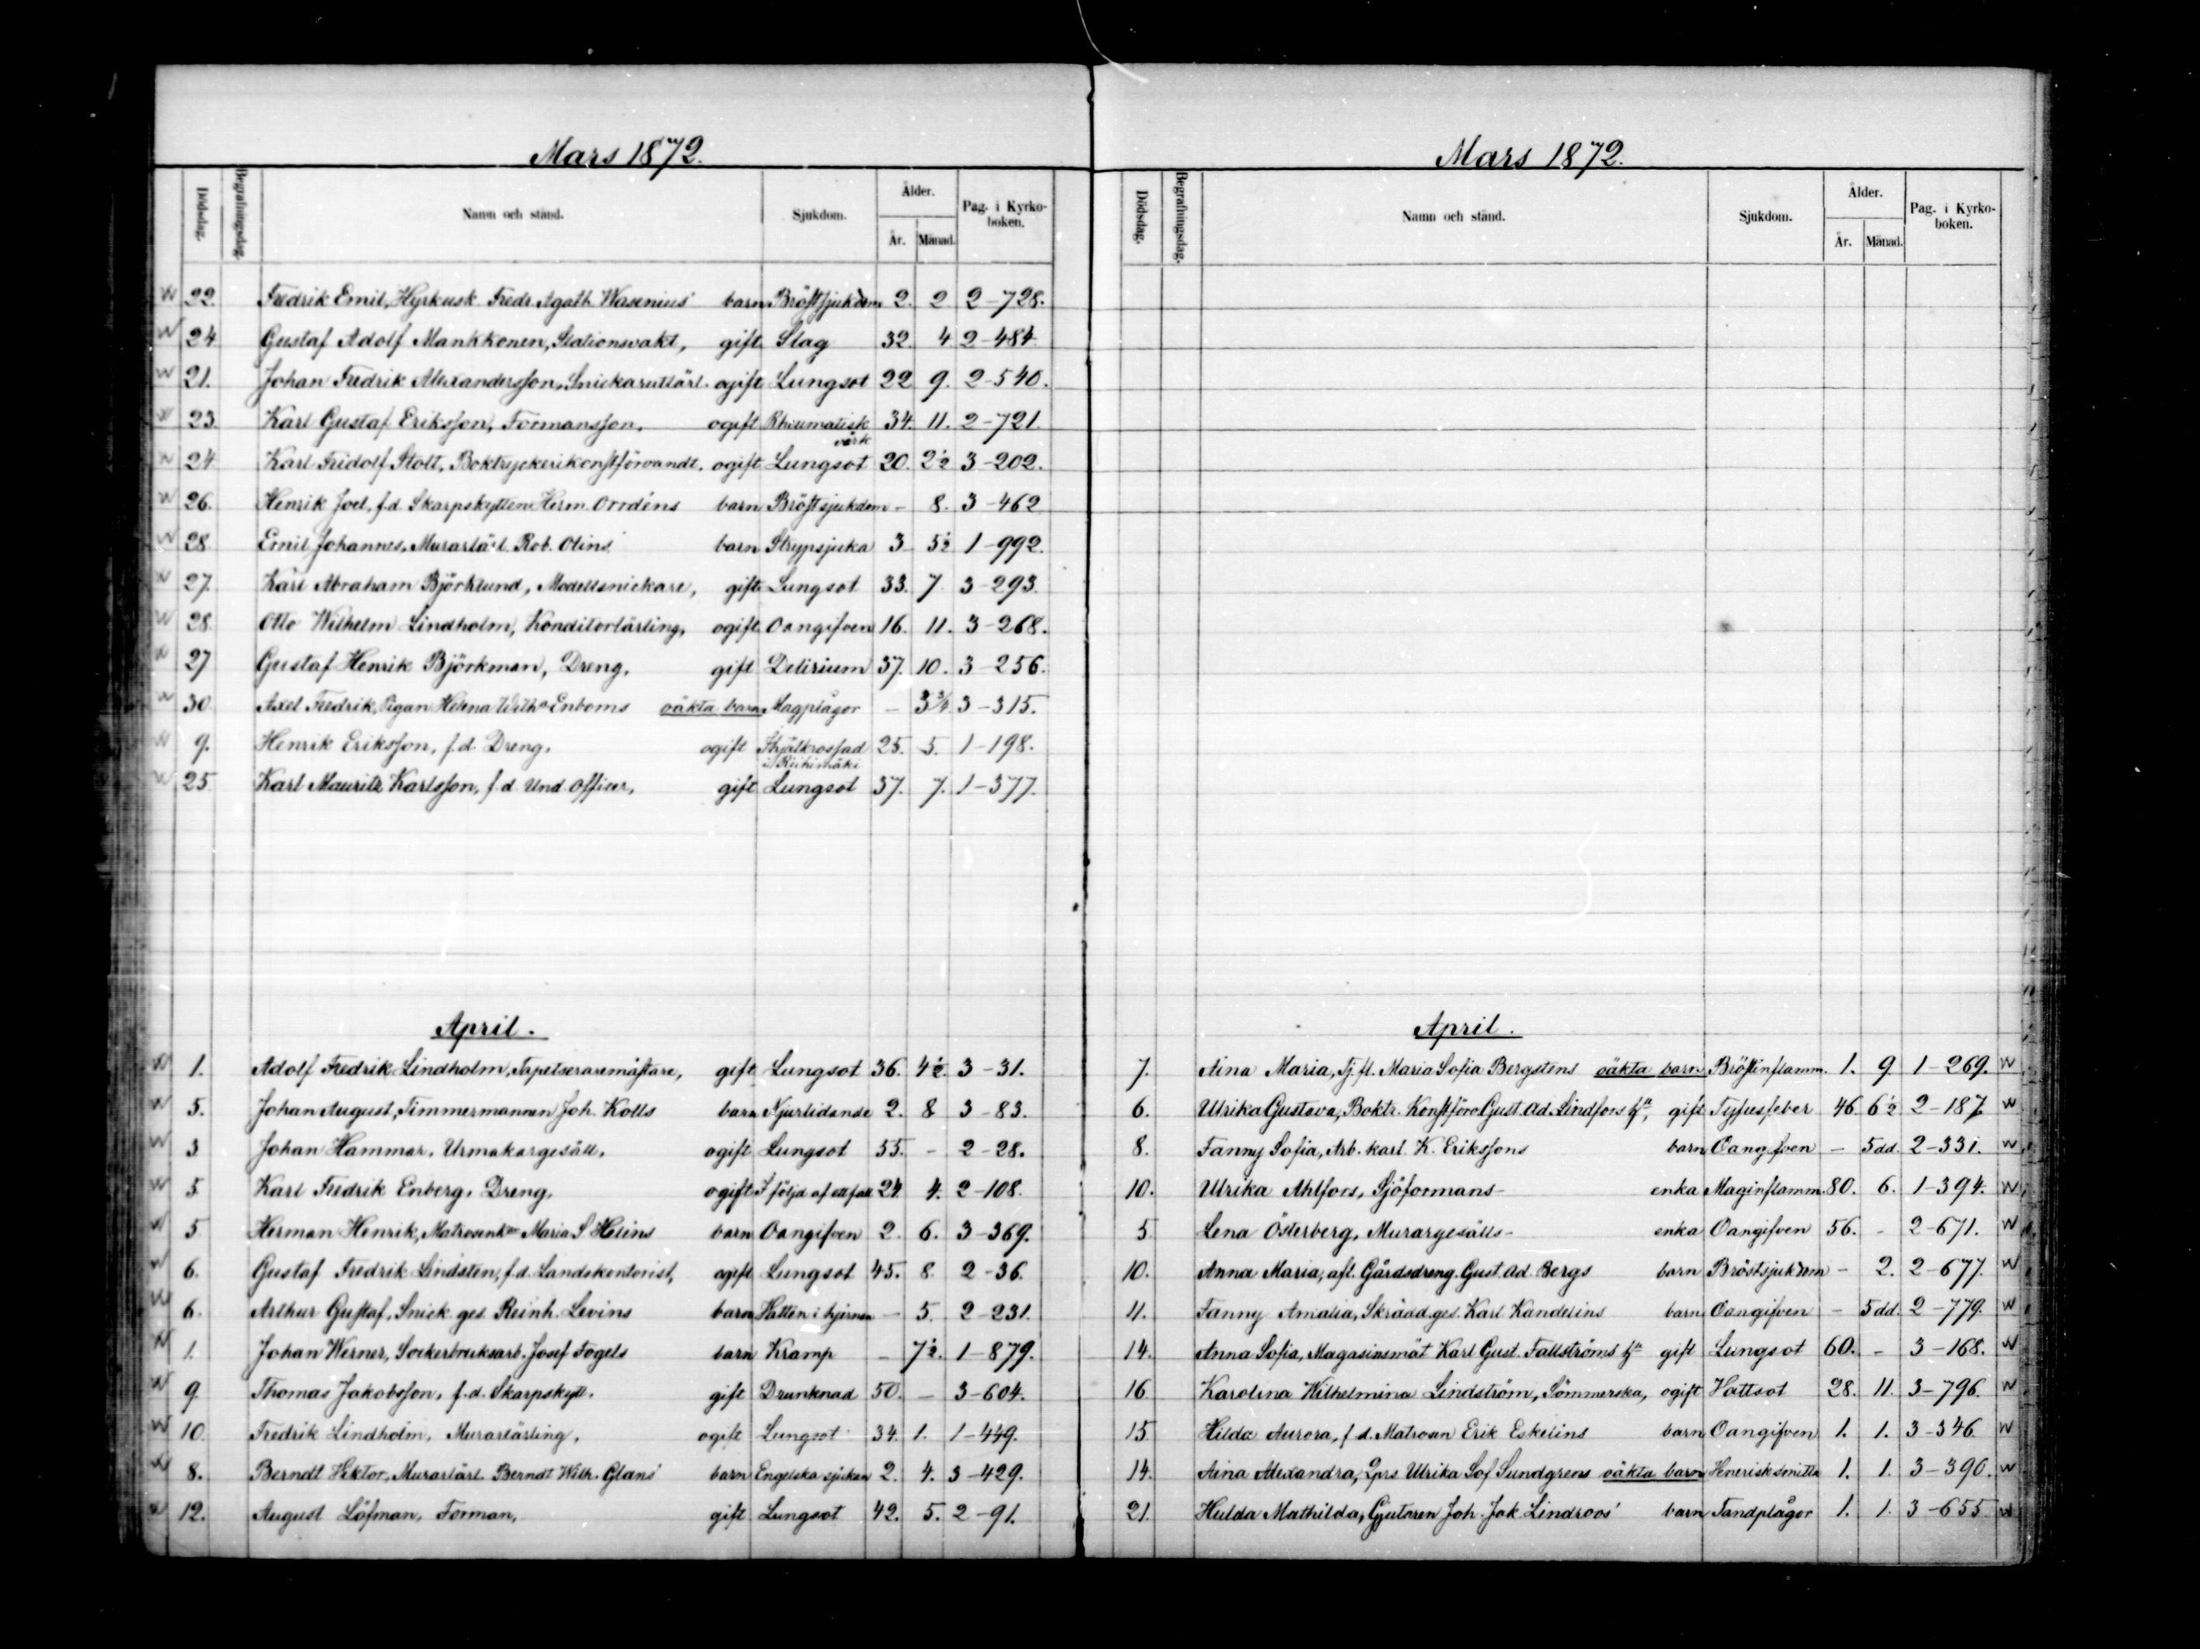 Mars 1872.
Dödsdag. Begrafningsdag. Namn och stånd. Sjukdom. Ålder. År. Månad. Pag. i Kyrko-boken.
W 22. Fredrik Emil, Hyrkusk Fredr. Agath. Wasenius' barn Bröstsjukdom 2. 2 2-728.
W 24 Gustaf Adolf Mankkonen, Stationsvakt, gift Slag 32. 4 2-484
W 21. Johan Fredrik Alexandersson, Snickarutlärl. ogift Lungsot 22 9. 2-540.
W 23. Karl Gustaf Eriksson, Formansson, ogift Rheumatisk värk 34. 11. 2-721.
W 24 Karl Fridolf Stolt, Boktryckerikonstförvandt, ogift Lungsot 20. 2½ 3-202.
W 26. Henrik Joel, f.d. Skarpskytten Herm. Orrdéns barn Bröstsjukdom - 8. 3-462
W 28 Emil Johannes, Murarlärl. Rob. Olins barn Strypsjuka 3 5½ 1-992.
W 27. Karl Abraham Björklund, Modellsnickare, gift Lungsot 33. 7 3-293.
W 28. Otto Wilhelm Lindholm, Konditorlärling, ogift Oangifven 16. 11. 3-268.
W 27 Gustaf Henrik Björkman, Dreng, gift Delirium 37. 10. 3-256.
W 30 Axel Fredrik, Pigan Helena Wilha Enboms oäkta barn Magplågor - 3¾ 3-315.
W 9. Henrik Eriksson, f.d. Dreng, ogift Ihjälkrossad i Riihimäki 25. 5. 1-198.
W 25 Karl Mauritz Karlsson, f.d. Und. Officer, gift Lungsot 37. 7. 1-377.
April.
W 1. Adolf Fredrik Lindholm, Tapetseraremästare, gift Lungsot 36. 4½ 3-31.
W 5. Johan August, Timmermannen Joh. Kolls barn Njurlidande 2. 8 3-83.
W 3 Johan Hammar, Urmakargesäll, ogift Lungsot 55. - 2-28.
W 5 Karl Fredrik Enberg, Dreng, ogift I följd af ett fall 24. 4. 2-108.
W 5 Herman Henrik, Matrosenkan Maria S. Helins barn Oangifven 2. 6. 3-369.
W 6. Gustaf Fredrik Lindsten, f.d. Landskontorist, ogift Lungsot 45. 8. 2-36.
W 6. Arthur Gustaf, Snick. ges. Reinh. Levins barn Vatten i hjernan - 5. 2-231.
W 1. Johan Werner, Sockerbruksarb. Josef Fogels barn Kramp - 7½. 1-879.
W 9. Thomas Jakobsson, f.d. Skarpskytt, gift Drunknad 50. - 3-604.
W 10. Fredrik Lindholm, Murarlärling, ogift Lungsot 34. 1. 1-449.
W 8. Berndt Hektor, Murarlärl. Berndt Wilh. Glans' barn Engelska sjukan 2. 4. 3-429.
W 12. August Löfman, Forman, gift Lungsot 42. 5. 2-91.
Mars 1872.
Dödsdag. Begrafningsdag. Namn och stånd. Sjukdom. Ålder. År. Månad. Pag. i Kyrko-boken.
April.
7. Aina Maria, Tj. fl. Maria Sofia Bergstens oäkta barn Bröstinflamm. 1. 9. 1-269. W
6. Ulrika Gustava, Boktr. Konstförv. Gust. Ad. Lindfors h:u, gift Tyfusfeber 46 6½ 2-187. W
8. Fanny Sofia, Arb. karl. K. Erikssons barn Oangifven - 5 dd. 2-331. W
10. Ulrika Ahlfors, Sjöformans- enka Maginflamm. 80. 6. 1-394. W
5 Lena Österberg, Murargesälls- enka Oangifven 56. - 2-671. W
10. Anna Maria, afl. Gårdsdreng. Gust. Ad. Bergs barn Bröstsjukdom - 2. 2-677. W
11. Fanny Amalia, Skrädd. ges. Karl Kandelins barn Oangifven - 5 dd. 2-779. W
14. Anna Sofia, Magasinsmät Karl Gust. Fallströms h:u gift Lungsot 60. - 3-168. W
16 Karolina Wilhelmina Lindström, Sömmerska, ogift Vattsot 28. 11. 3-796. W
15 Hilda Aurora, f.d. Matrosen Erik Eskelins barn Oangifven 1. 1. 3-346 W
14. Aina Alexandra, Qprs. Ulrika Sof. Sundgrens oäkta barn Venerisk smitta 1. 1. 3-390. W
21. Hulda Mathilda, Gjutaren Joh. Jak. Lindroos' barn Tandplågor 1. 1. 3-655. W